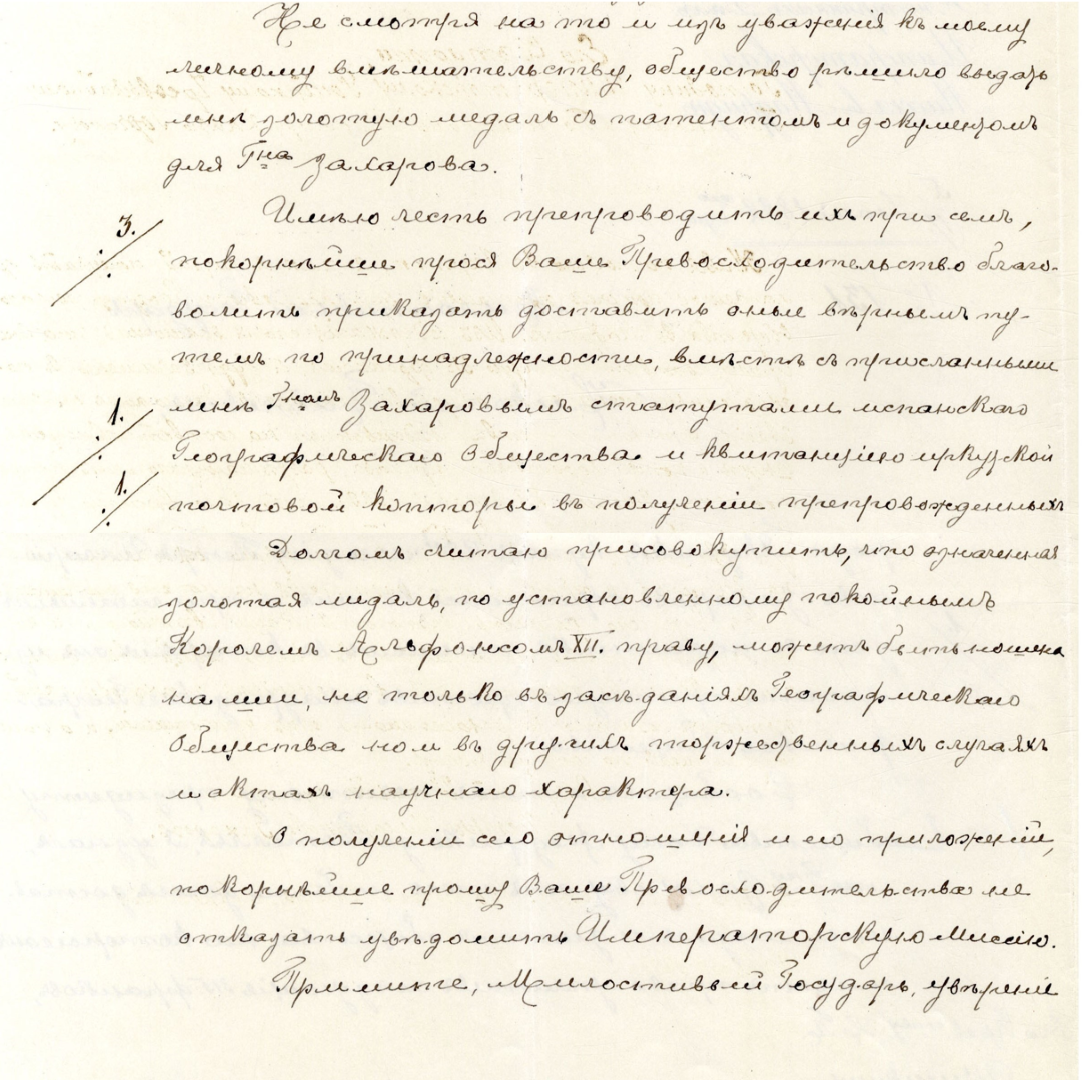 Не смотря на то и изъ уваженія къ моему
личному вмѣшательству, общество рѣшило выдать
мнѣ золотую медаль съ патентомъ и документомъ
для Гна Захарова.
3.
Имѣю честь препроводить ихъ при семъ,
покорнѣйше прося Ваше Превосходительство благо-
волить приказать доставить оные вѣрнымъ пу-
темъ по принадлежности, вмѣстѣ съ присланными
1.
мнѣ Гномъ Захаровымъ статутами испанскаго
Географическаго Общества и квитанціею иркутской
1.
почтовой конторы въ полученіи препровожденныхъ
Долгомъ считаю присовокупить, что означенная
золотая медаль, по установленному покойнымъ
Королемъ Альфонсомъ XII. праву, можетъ быть ношена
на шеи, не только въ засѣданіяхъ Географическаго
Общества но и въ другихъ торжественныхъ случаяхъ
и актахъ научнаго характера.
О полученіи сего отношенія и его приложеній,
покорнѣйше прошу Ваше Превосходительство не
отказать увѣдомить Императорскую Миссію.
Примите, Милостивый Государь, увѣреніе